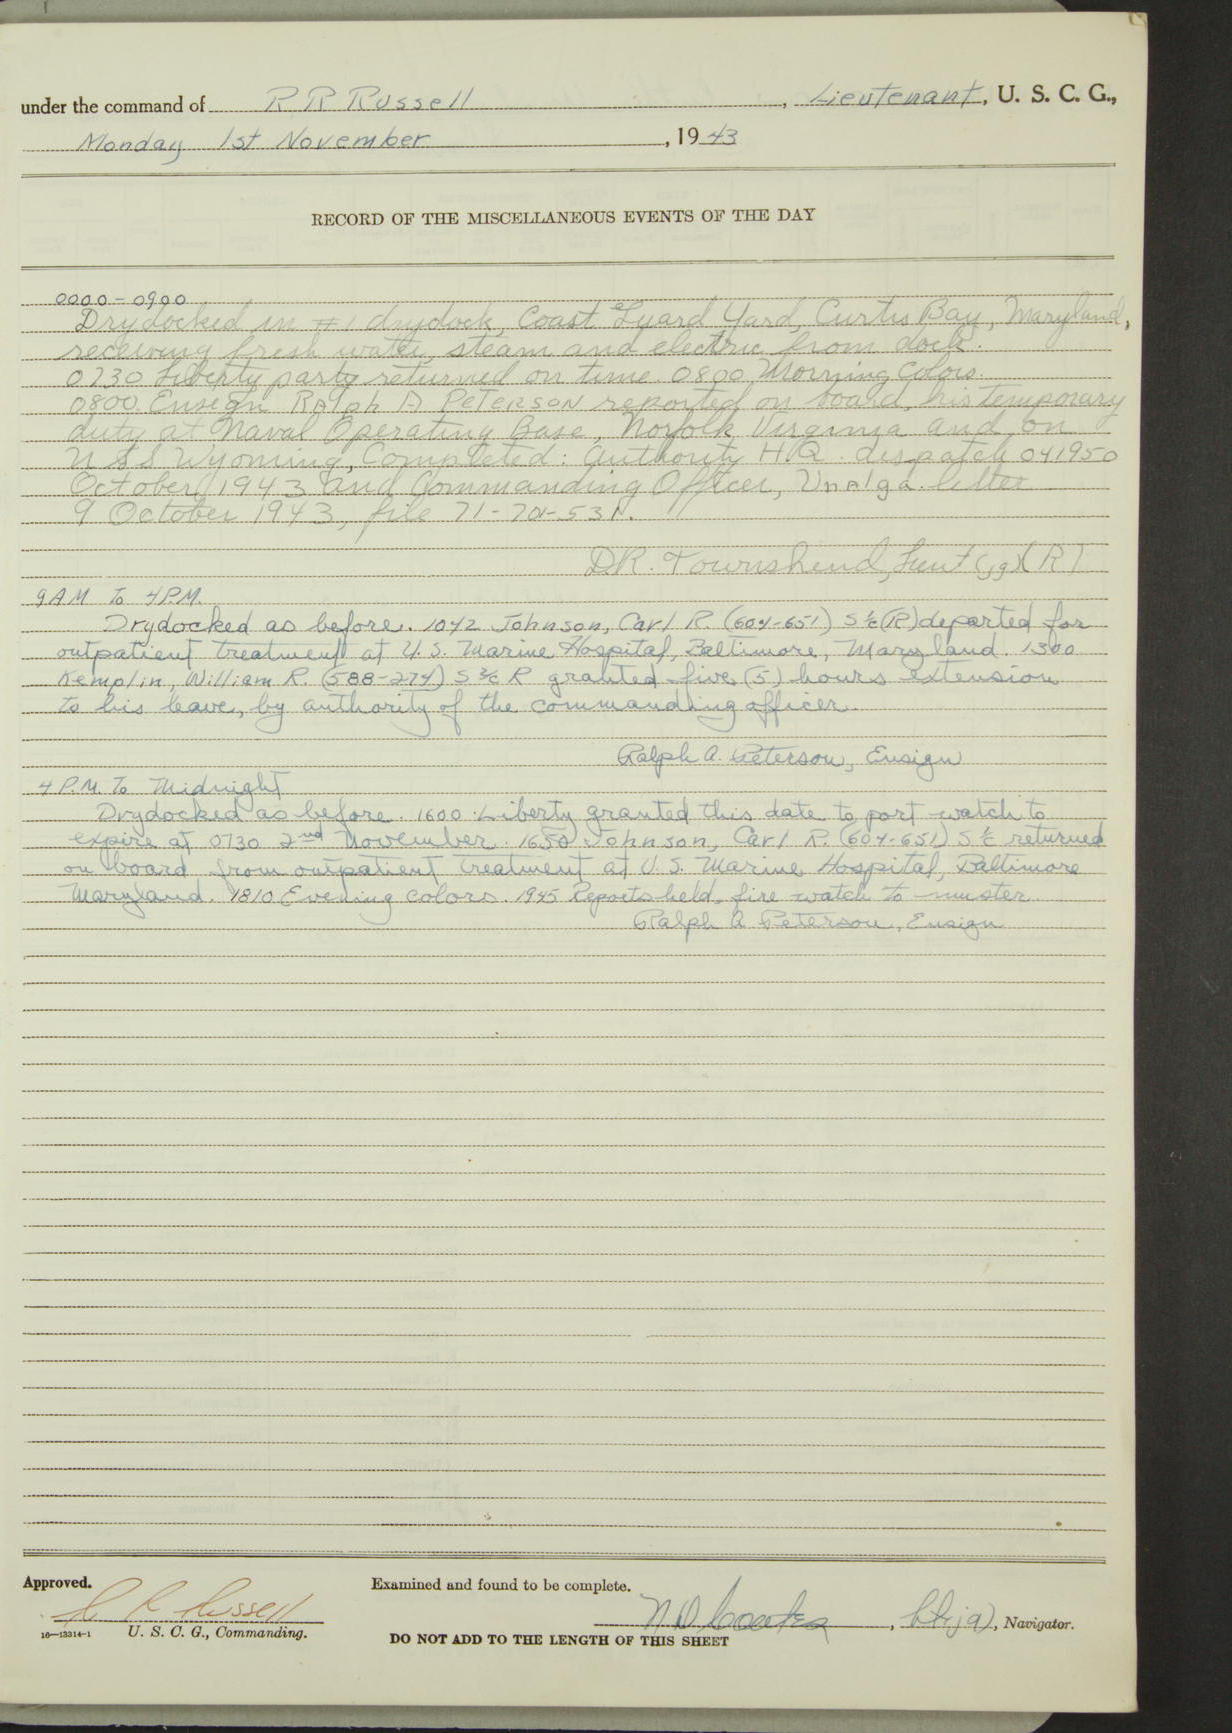 under the command of R R Russell, Lieutenant, U. S. C. G.,
Monday 1st November, 1943
RECORD OF THE MISCELLANEOUS EVENTS OF THE DAY
0000-0900
Drydocked in #1 drydock, Coast Guard Yard, Curtis Bay, Maryland,
receiving fresh water, steam and electric from dock.
0730 Liberty party returned on time. 0800 Morning Colors.
0800. Ensign Ralph A Peterson reported on board, his temporary
duty at Naval Operating Base, Norfolk Virginia and on
USS Wyoming, Completed: Authority H.Q. dispatch 041950
October 1943 and Commanding Officer, Unalga letter
9 October 1943, file 71-701-531.
D.R. Townshend, Lieut (jg) (R)
9 AM To 4 P.M.
Drydocked as before. 1042 Johnson, Carl R. (604-651) S 1/c (R) departed for
outpatient treatment at U.S. Marine Hospital, Baltimore, Maryland. 1300
Kemplin, William R. (588-274) S 2/c R granted five (5) hours extension
to his leave, by authority of the commanding officer.
Ralph A. Peterson, Ensign
4 P.M. To Midnight
Drydocked as before. 1600 Liberty granted this date to port watch to
expire at 0730 2nd November. 1650 Johnson, Carl R. (604-651) S 1/c returned
on board from outpatient treatment at U.S. Marine Hospital, Baltimore
Maryland. 1810 Evening colors. 1945 Reports held, fire watch to muster.
Ralph A. Peterson, Ensign
Approved. Examined and found to be complete.
R R Russell N D , Navigator.
16—13314-1 U. S. C. G., Commanding.
DO NOT ADD TO THE LENGTH OF THIS SHEET